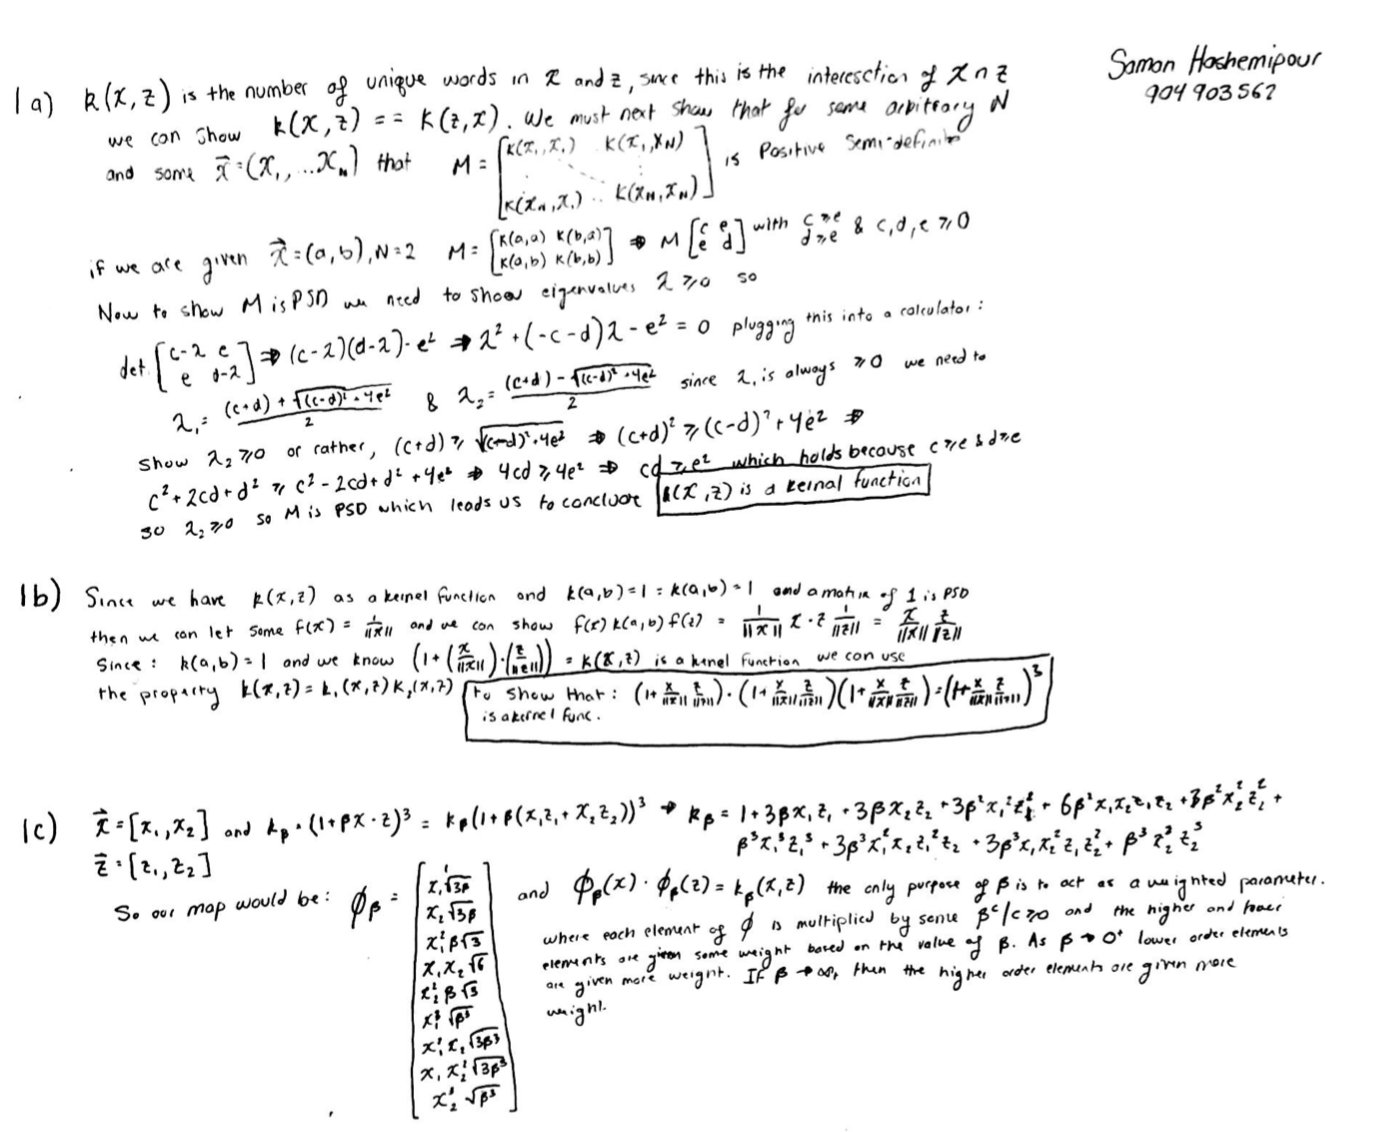 Saman Hashemipour
904 903 562
1a) k(x,z) is the number of unique words in x and z, since this is the interesection of x ∩ z
we can show k(x,z) == k(z,x). We must next show that for some arbitrary N
and some x⃗ = (x₁, ... xₙ) that M = [k(x₁,x₁) k(x₁,x_N) ... k(x_N,x₁) .. k(x_N,x_N)] is Positive Semi-definite
if we are given x⃗ = (a,b), N=2 M = [k(a,a) k(b,a) k(a,b) k(b,b)] ⇒ M [c e e d] with c≥e d≥e & c,d,e ≥0
Now to show M is PSD we need to show eigenvalues λ ≥0 so
det [c-λ e e d-λ] ⇒ (c-λ)(d-λ)-e² ⇒ λ² +(-c-d)λ - e² = 0 plugging this into a calculator:
λ₁ = (c+d) + √(c-d)² + 4e² / 2 & λ₂ = (c+d) - √(c-d)² + 4e² / 2 since λ₁ is always ≥0 we need to
show λ₂ ≥0 or rather, (c+d) ≥ √(c-d)² + 4e² ⇒ (c+d)² ≥ (c-d)² + 4e² ⇒
c² + 2cd + d² ≥ c² - 2cd + d² + 4e² ⇒ 4cd ≥ 4e² ⇒ cd ≥ e² which holds because c≥e & d≥e
so λ₂ ≥0 so M is PSD which leads us to conclude k(x,z) is a kernal function
1b) Since we have k(x,z) as a kernel function and k(a,b)=1 = k(a,b)=1 and a matrix of 1 is PSD
then we can let some f(x) = 1/||x|| and we can show f(x) k(a,b) f(z) = 1/||x|| x · z 1/||z|| = x/||x|| z/||z||
Since: k(a,b) = 1 and we know (1+(x/||x||)·(z/||z||)) = k(x,z) is a kernel function we can use
the property k(x,z) = k₁(x,z) k₂(x,z) to show that: (1+ x/||x|| z/||z||)·(1+ x/||x|| z/||z||)(1+ x/||x|| z/||z||) = (1+ x/||x|| z/||z||)³
is a kernel func.
1c) x⃗ = [x₁,x₂] and kβ = (1+βx·z)³ = kβ(1+β(x₁z₁+x₂z₂))³ → kβ = 1+3βx₁z₁ +3βx₂z₂ +3β²x₁²z₁² + 6β²x₁x₂z₁z₂ +3β²x₂²z₂² +
z⃗ = [z₁,z₂] β³x₁³z₁³ + 3β³x₁²x₂z₁²z₂ + 3β³x₁x₂²z₁z₂² + β³x₂³z₂³
So our map would be: φβ = [1
x₁√3β
x₂√3β
x₁²β√3
x₁x₂√6
x₂²β√3
x₁³√β³
x₁²x₂√3β³
x₁x₂²√3β³
x₂³√β³]
and φβ(x)·φβ(z) = kβ(x,z) the only purpose of β is to act as a weighted parameter.
where each element of φ is multiplied by some βᶜ/c≥0 and the higher and lower
elements are given some weight based on the value of β. As β → 0⁺ lower order elements
are given more weight. If β → ∞, then the higher order elements are given more
weight.